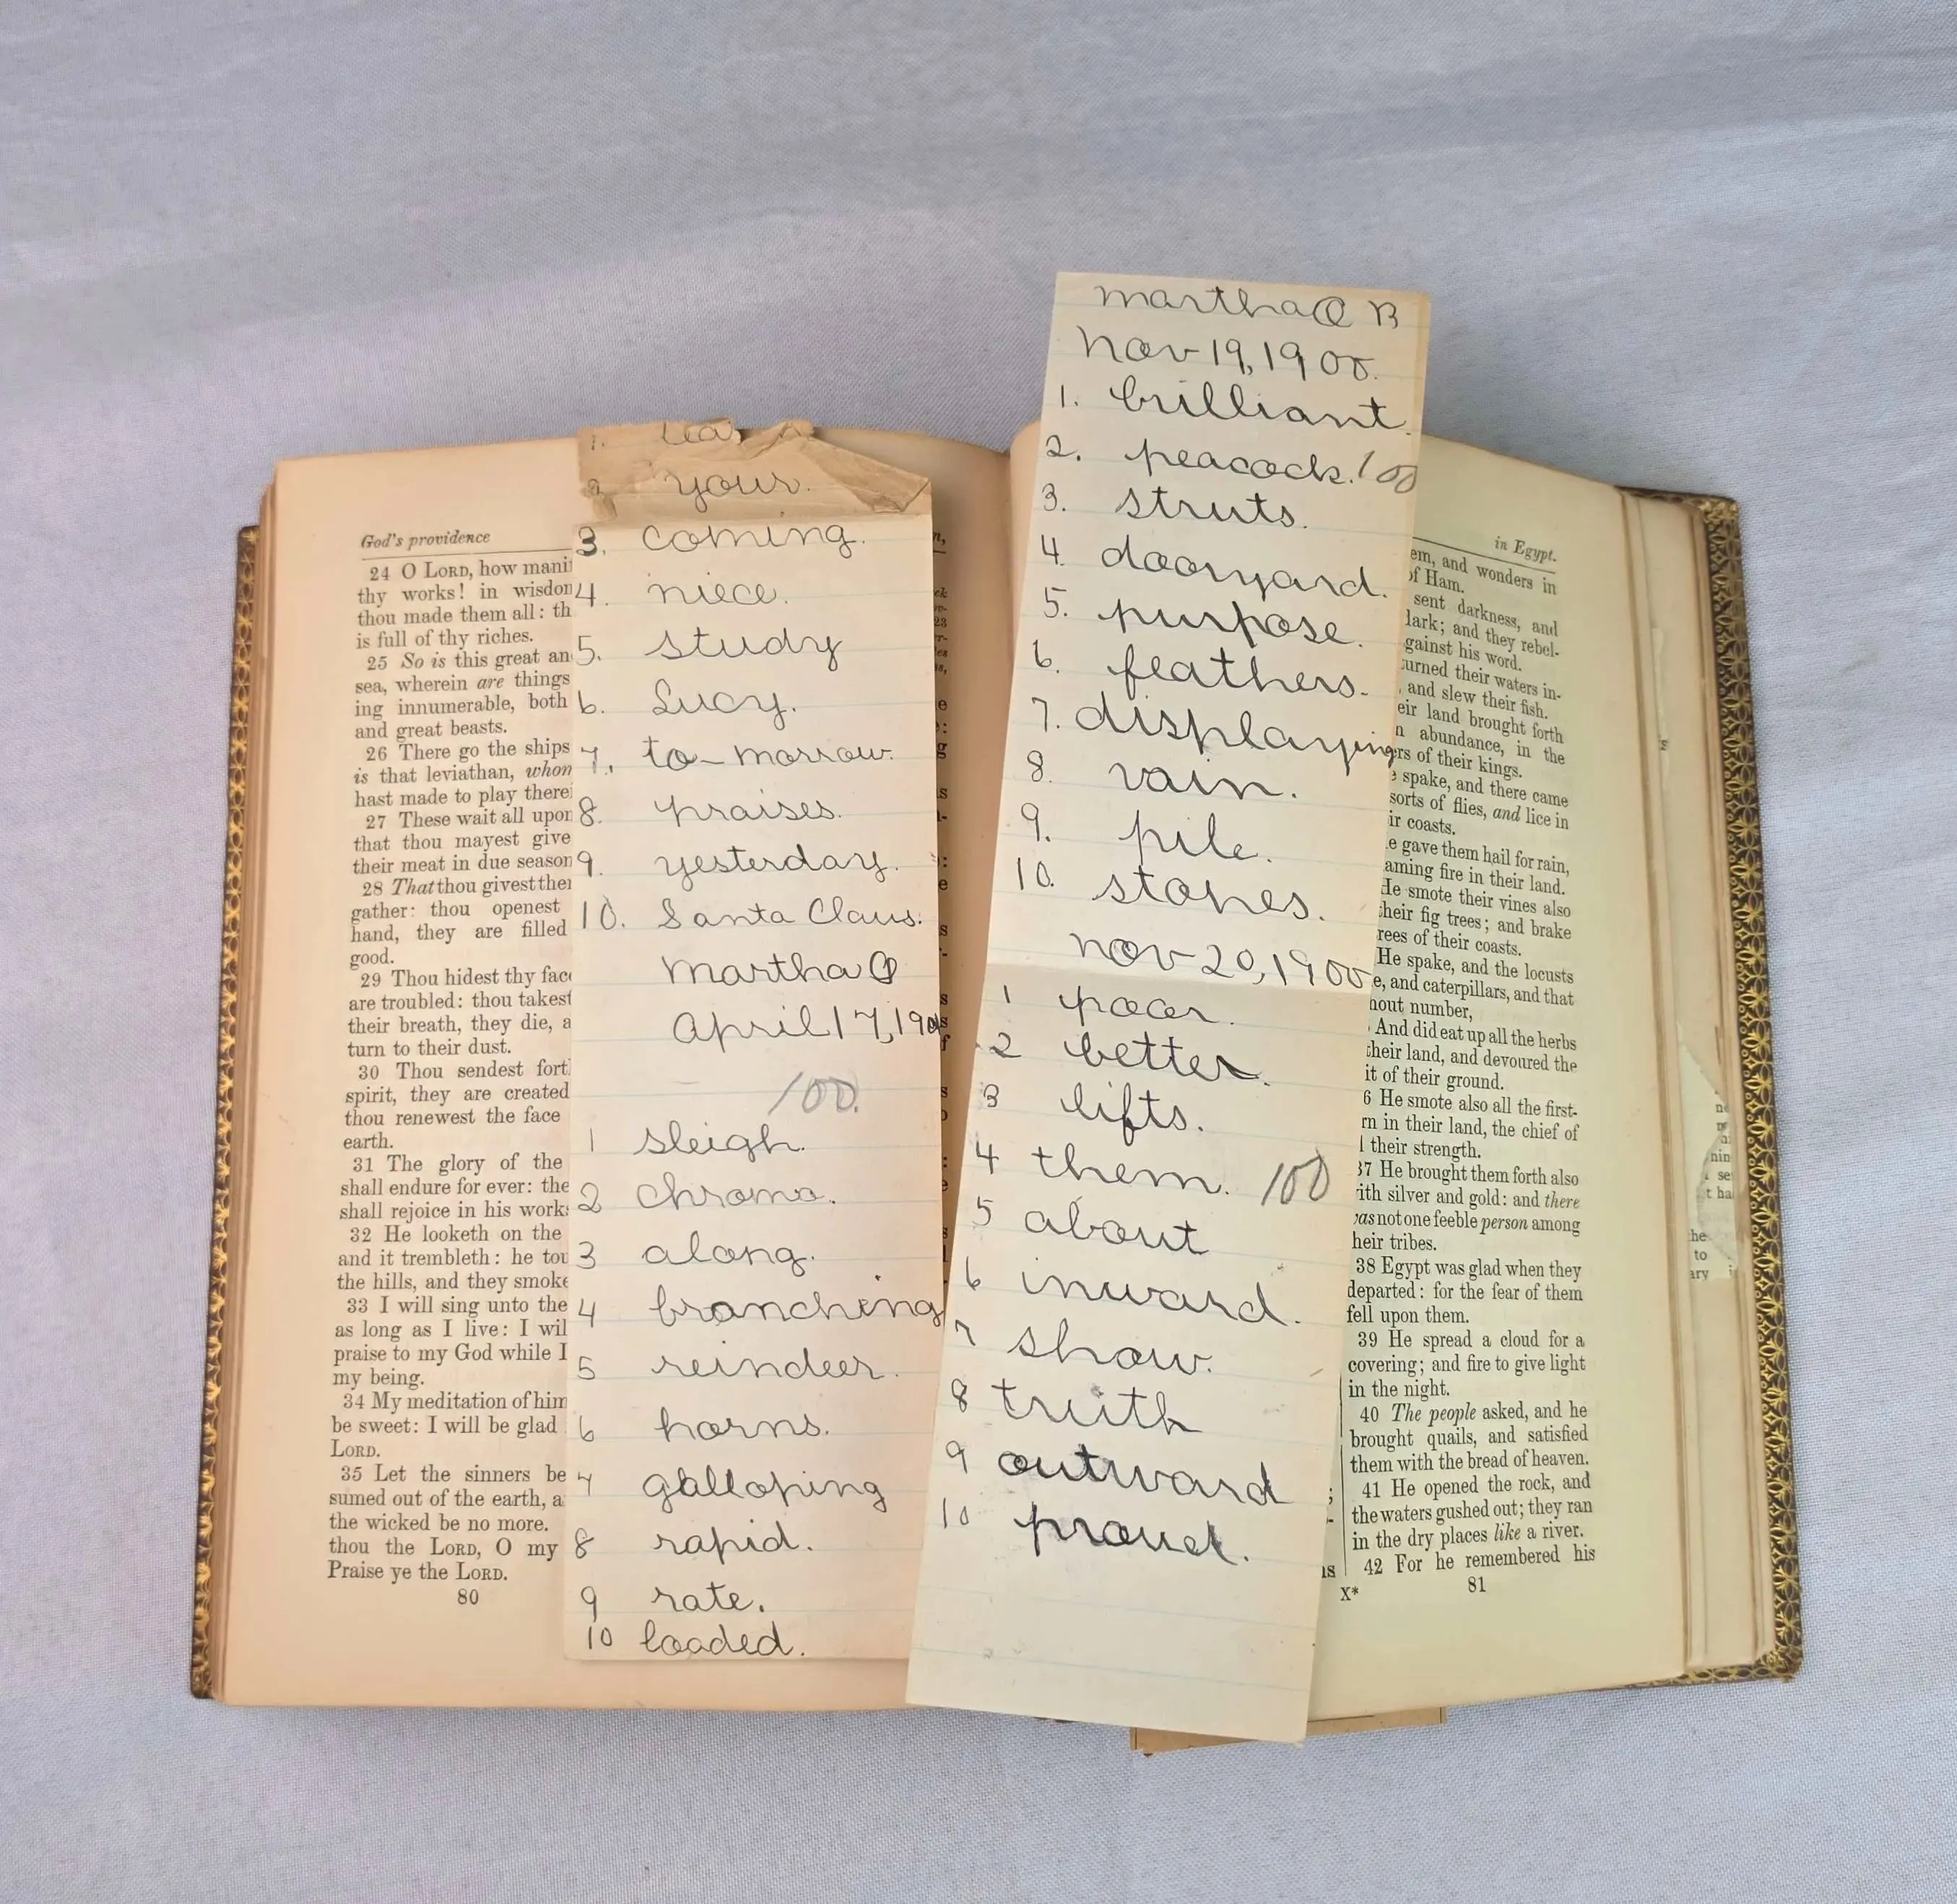 God's providence
24 O LORD, how mani
thy works! in wisdom
thou made them all: th
is full of thy riches.
25 So is this great an
sea, wherein are things
ing innumerable, both
and great beasts.
26 There go the ships
is that leviathan, whom
hast made to play there
27 These wait all upon
that thou mayest give
their meat in due season
28 That thou givest the
gather: thou openest
hand, they are filled
good.
29 Thou hidest thy face
are troubled: thou takest
their breath, they die, a
turn to their dust.
30 Thou sendest fort
spirit, they are created
thou renewest the face
earth.
31 The glory of the
shall endure for ever: the
shall rejoice in his works
32 He looketh on the
and it trembleth: he tou
the hills, and they smoke
33 I will sing unto the
as long as I live: I wil
praise to my God while I
my being.
34 My meditation of him
be sweet: I will be glad
LORD.
35 Let the sinners be
sumed out of the earth, a
the wicked be no more.
thou the LORD, O my
Praise ye the LORD.
80
1.
your.
3. coming.
4. niece.
5. study
6. Lucy.
7. to-morrow.
8. praises.
9. yesterday.
10. Santa Claus.
Martha O
April 17, 190
100.
1 sleigh.
2 chromo.
3 along.
4 branching
5 reindeer.
6 horns.
7 galloping
8 rapid.
9 rate.
10 loaded.
Martha O B
Nov 19, 1900.
1. brilliant.
2. peacock. 100
3. struts.
4. dooryard.
5. purpose.
6. feathers.
7. displaying
8. vain.
9. pile.
10. stones.
Nov 20, 1900
1 poor.
2 better.
3 lifts.
4 them. 100
5 about
6 inward.
7 show.
8 truth
9 outward
10 proud.
in Egypt.
em, and wonders in
of Ham.
sent darkness, and
dark; and they rebel-
against his word.
turned their waters in-
, and slew their fish.
eir land brought forth
n abundance, in the
ers of their kings.
e spake, and there came
sorts of flies, and lice in
ir coasts.
e gave them hail for rain,
aming fire in their land.
He smote their vines also
their fig trees; and brake
rees of their coasts.
He spake, and the locusts
e, and caterpillars, and that
hout number,
And did eat up all the herbs
their land, and devoured the
it of their ground.
6 He smote also all the first-
rn in their land, the chief of
l their strength.
37 He brought them forth also
ith silver and gold: and there
was not one feeble person among
heir tribes.
38 Egypt was glad when they
departed: for the fear of them
fell upon them.
39 He spread a cloud for a
covering; and fire to give light
in the night.
40 The people asked, and he
brought quails, and satisfied
them with the bread of heaven.
41 He opened the rock, and
the waters gushed out; they ran
in the dry places like a river.
42 For he remembered his
X* 81